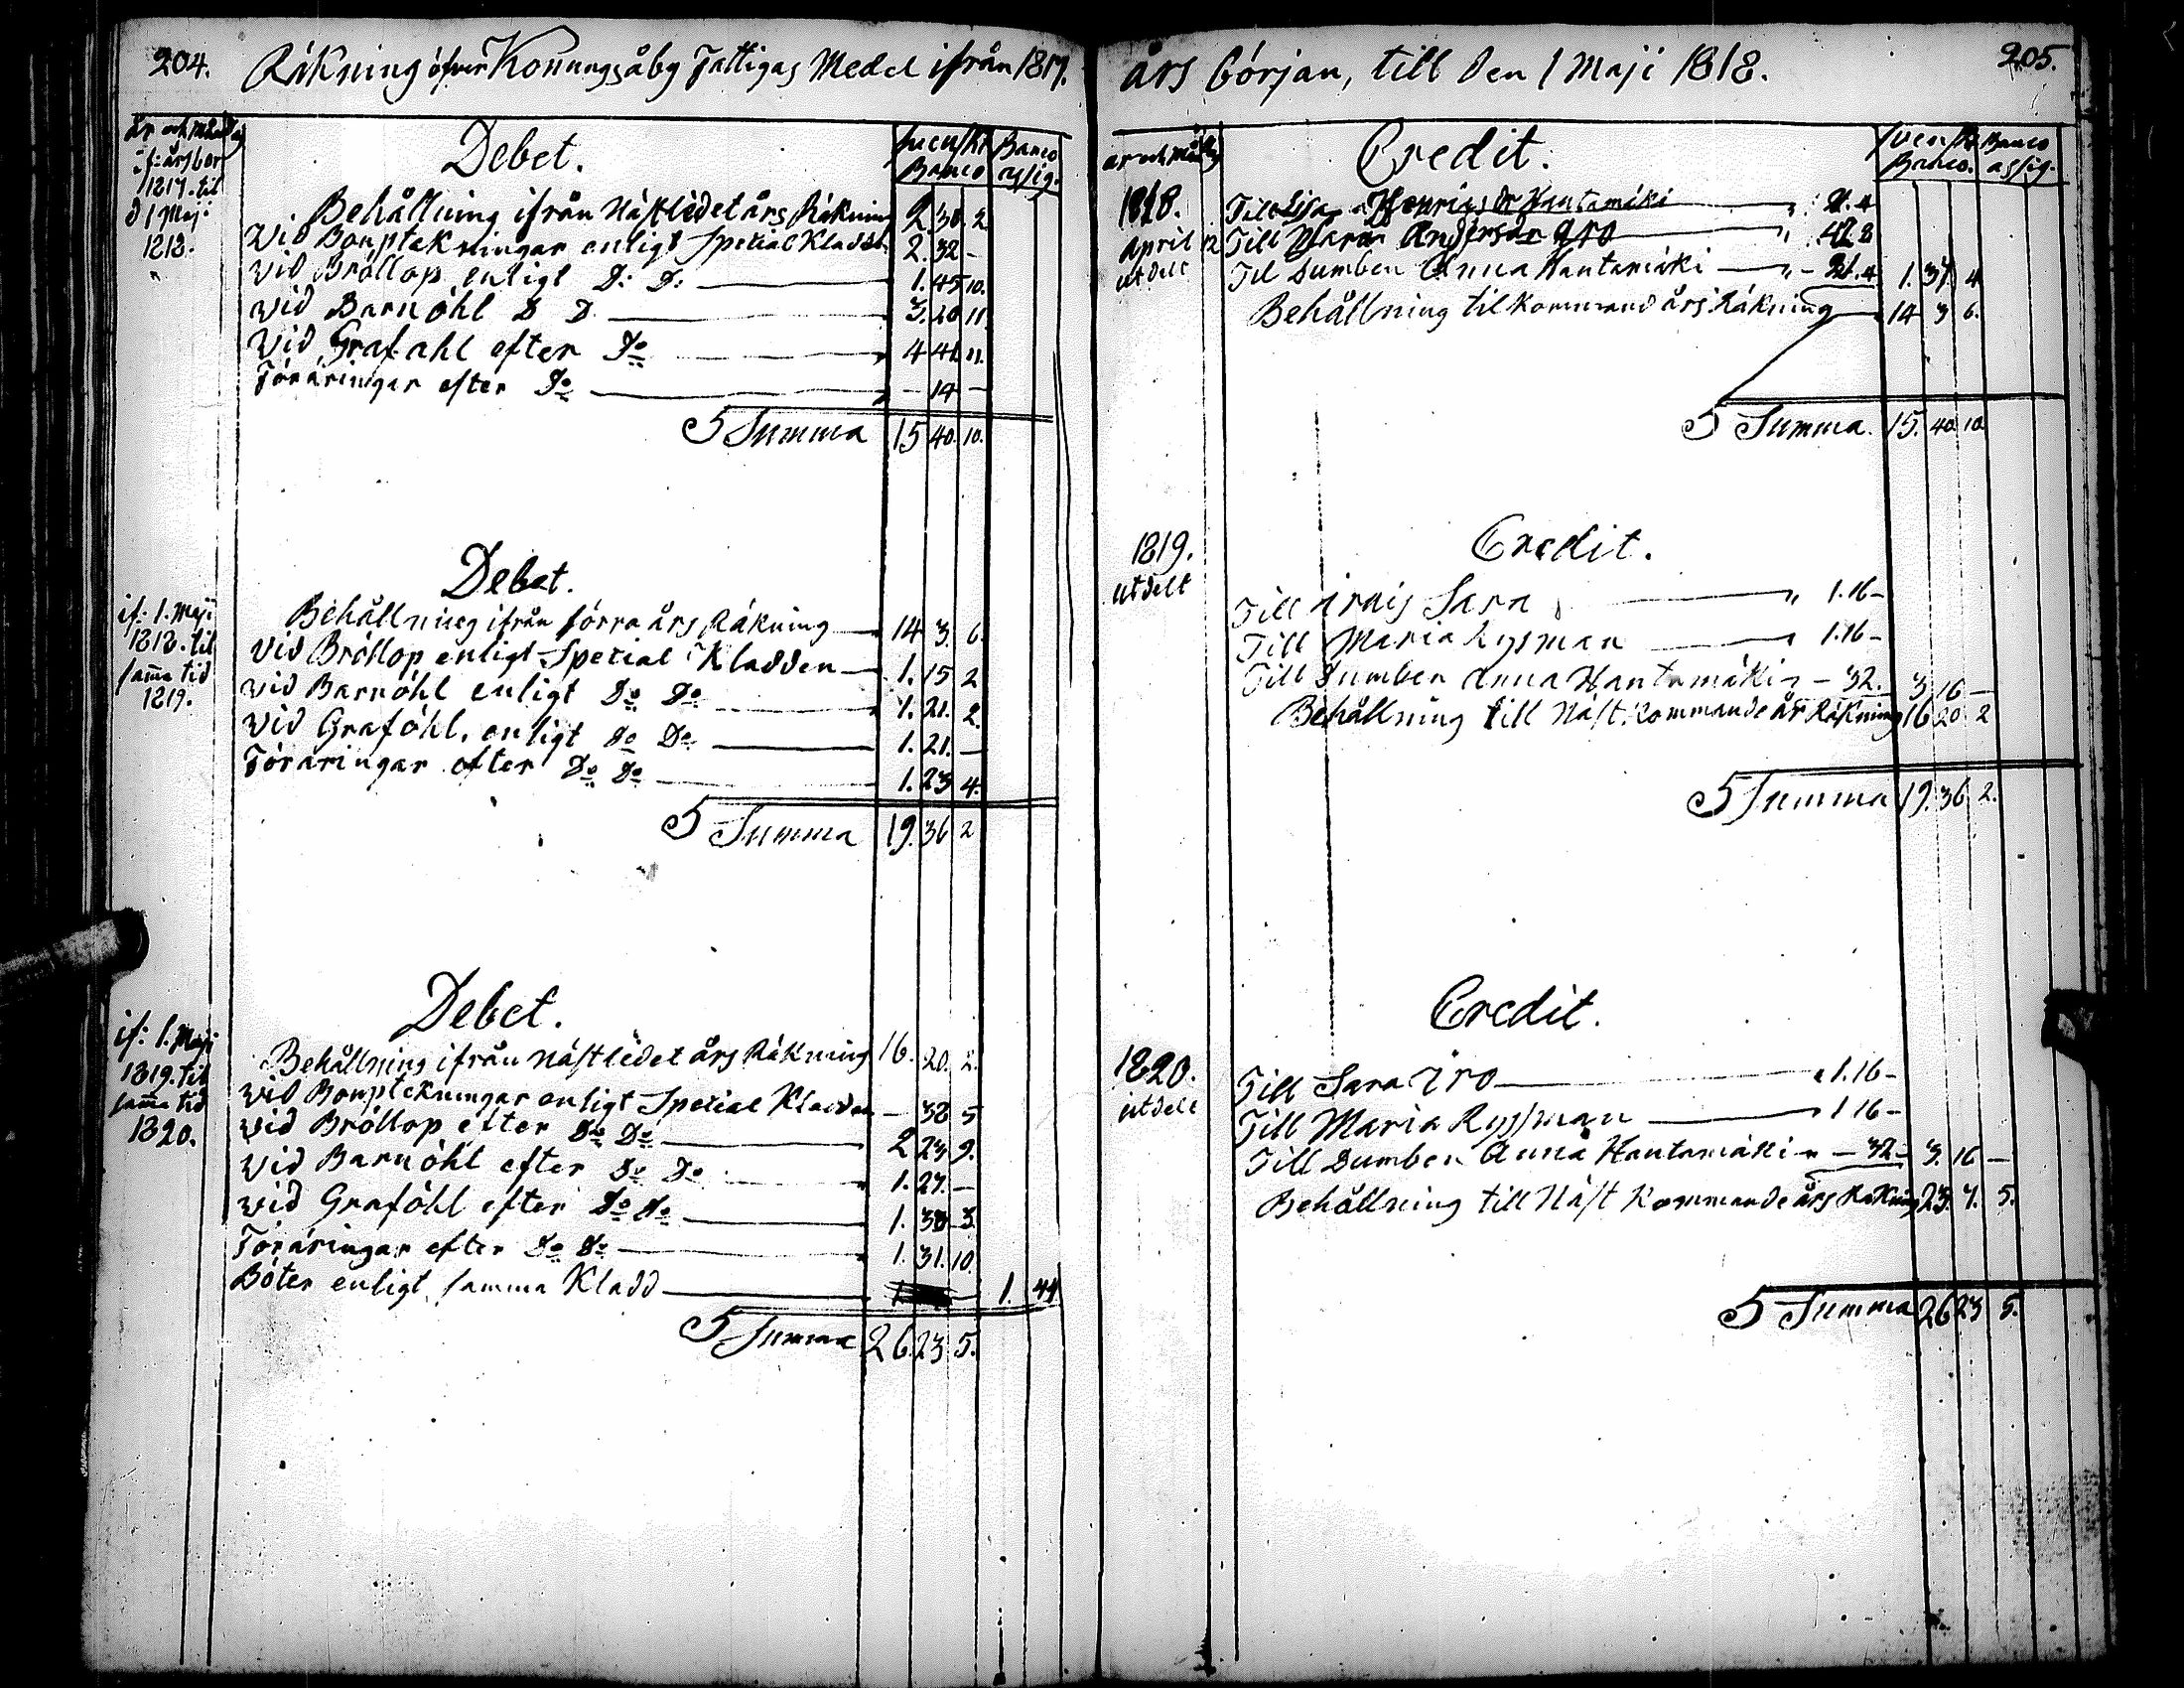 204. Räkning öfver Konungsåby Fattigas Medel ifrån 1817.
år och månad
if: års bör
1817. til
d 1 Maj:
1818.
Debet.
Svenskt Banco
Banco assig.
Behållning ifrån Nästledet års Räkning 2. 30. 2
Vid Bouptekningar enligt Special Kladden 2. 32 –
Vid Bröllop enligt D: D: 1. 45 10.
Vid Barnöhl D D. 3. 20 11.
Vid Graf-ahl efter Do 4 41 11.
Föräringar efter Do – 14 –
Summa 15 40. 10.
Debet.
if: 1. Maji
1818. til
samma tid
1819.
Behållning ifrån förra års Räkning 14 3. 6.
Vid Bröllop enligt Special Kladden 1. 15 2
Vid Barnöhl enligt Do Do 1. 21. 2.
Vid Graföhl. enligt Do Do 1. 21. –
Föräringar efter Do Do 1. 23 4.
Summa 19. 36 2
Debet.
if: 1. Maji
1819. til
samma tid
1820.
Behållning ifrån Nästledet års Räkning 16. 20. 2.
Vid Bouptekningar enligt Special Kladden – 32 5
Vid Bröllop efter Do Do 2 23 9.
Vid Barnöhl efter Do Do 1. 27. –
Vid Graföhl efter Do Do 1. 38 3.
Föräringar efter Do Do 1. 31. 10.
Böter enligt samma Kladd – 1. 44
Summa 26. 23 5.
års början, till den 1 Maji 1818. 205.
år och månad
Credit.
Svenskt Banco.
Banco assig.
1818.
April 12
utdelt
Till Lisa Henrics Dr Hantamäki 21. 4
Till Maria Anders dr Iro 42. 8
Til Dumben Anna Hantamäki – 21. 4 1. 37. 4
Behållning til kommand års Räkning 14 3 6.
Summa. 15. 40. 10
1819.
utdelt
Credit.
Till Sara 1. 16 –
Till Maria Rysman 1. 16 –
Till Dumben Anna Hantamäki – 32. 3 16 –
Behållning till Näst kommande års Räkning 16 20 2
Summa 19. 36 2.
Credit.
1820.
utdelt
Till Sara Iro 1. 16 –
Till Maria Ryssman 1 16 –
Till Dumben Anna Hantamäki – 32 – 3. 16 –
Behållning till Näst Kommande års Räkning 23. 7. 5.
Summa 26 23 5.